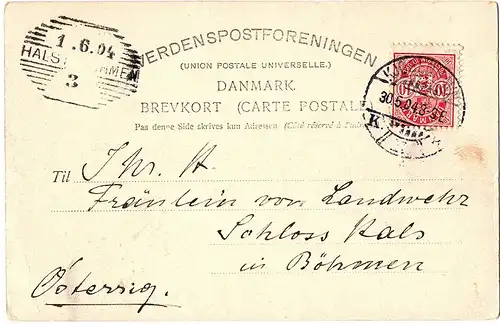 1.6.04
HALS HMEN
3
VERDENSPOSTFORENINGEN
(UNION POSTALE UNIVERSELLE.)
DANMARK.
BREVKORT (CARTE POSTALE)
Paa denne Side skrives kun Adressen (Côté réservé à
30.5.04
K.
Til Ihr. H.
Fräulein von Landwehr
Schloss Hals
in Böhmen
Österrig.